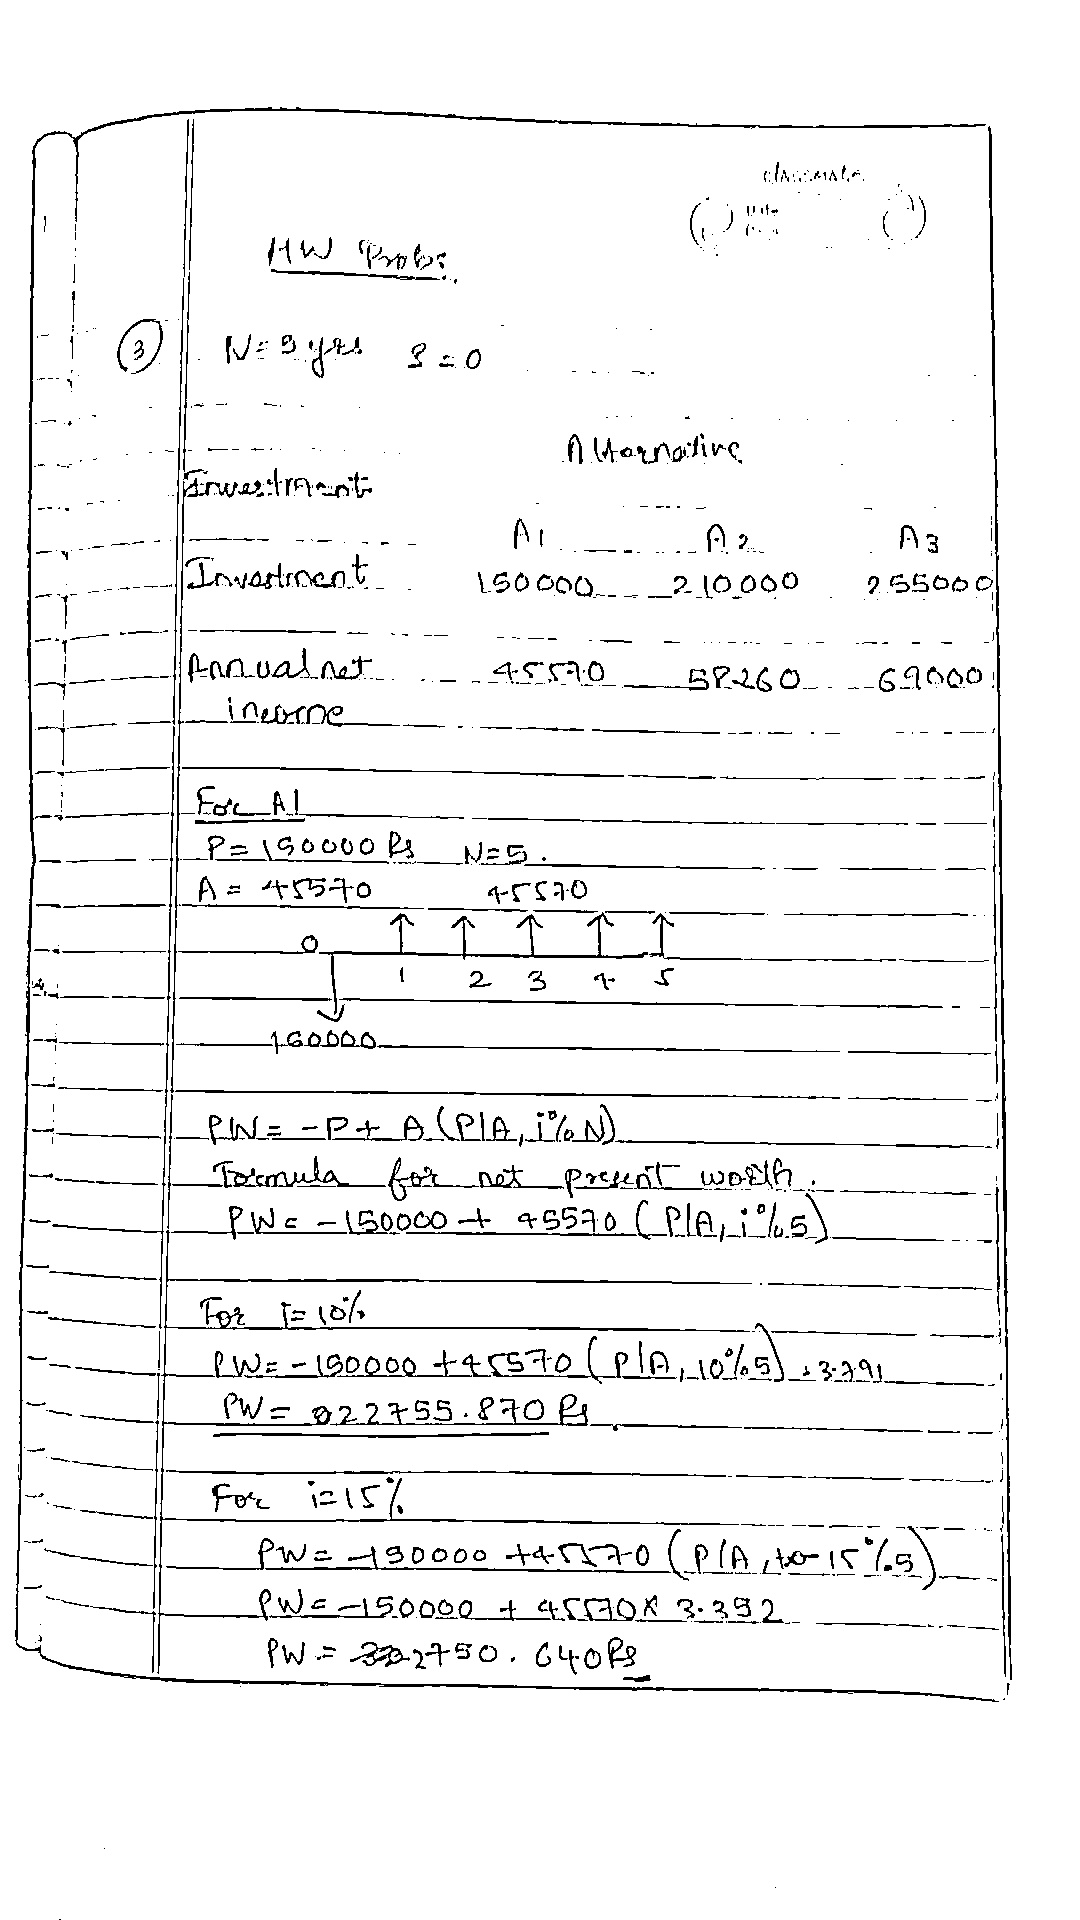 classmate
HW Prob:
3 N=5 yrs S=0
Alternative
Investment
A1 A2 A3
Investment 150000 210000 255000
Annual net 45570 58260 69000
income
For A1
P=150000 Rs N=5.
A = 45570 45570
0
1 2 3 4 5
150000
PW= -P+ A(P/A, i%N)
Formula for net present worth.
PW= -150000 + 45570 (P/A, i%5)
For I=10%
PW= -150000 +45570 (P/A, 10%5) 3.791
PW= 22755.870 Rs.
For i=15%
PW= -150000 +45570 (P/A, 15%5)
PW= -150000 + 45570 X 3.352
PW = 2750.640Rs